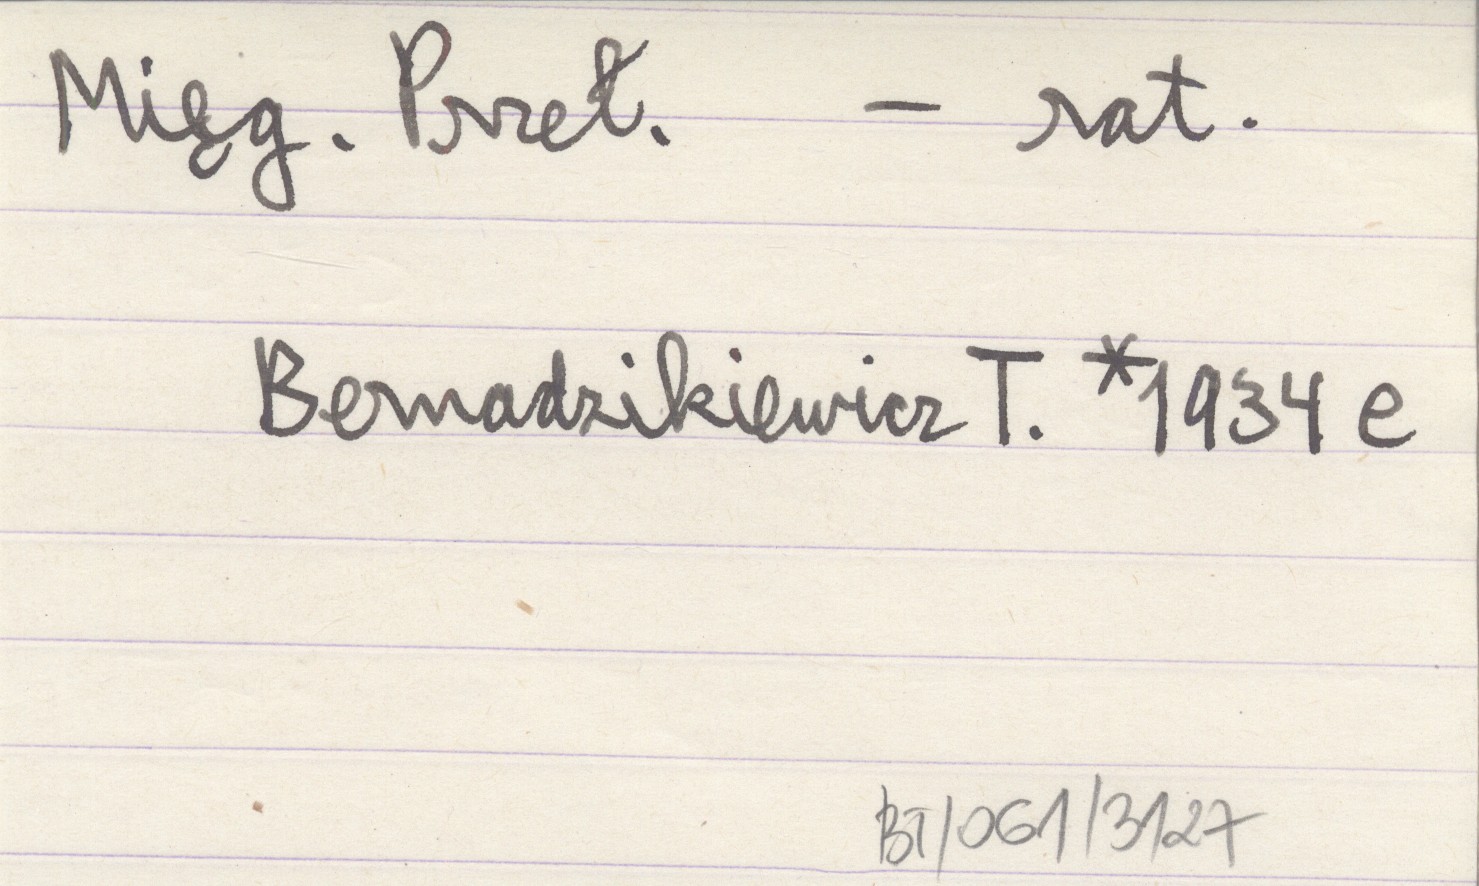 Mięg. Przeł. – rat.
Bernadzikiewicz T. *1934 e
BT/061/3127